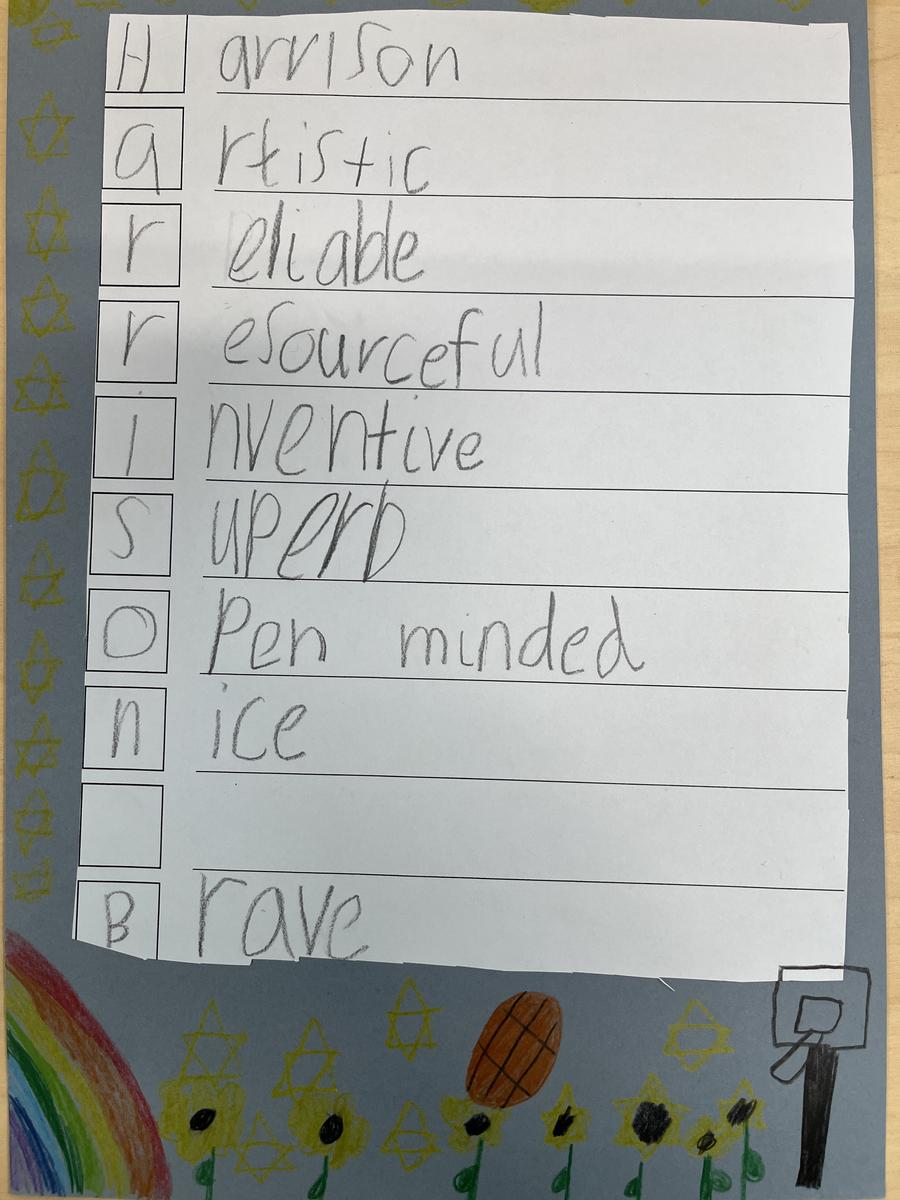 H arrison
a rtistic
r eliable
r esourceful
i nventive
s uperb
O Pen minded
n ice
B rave